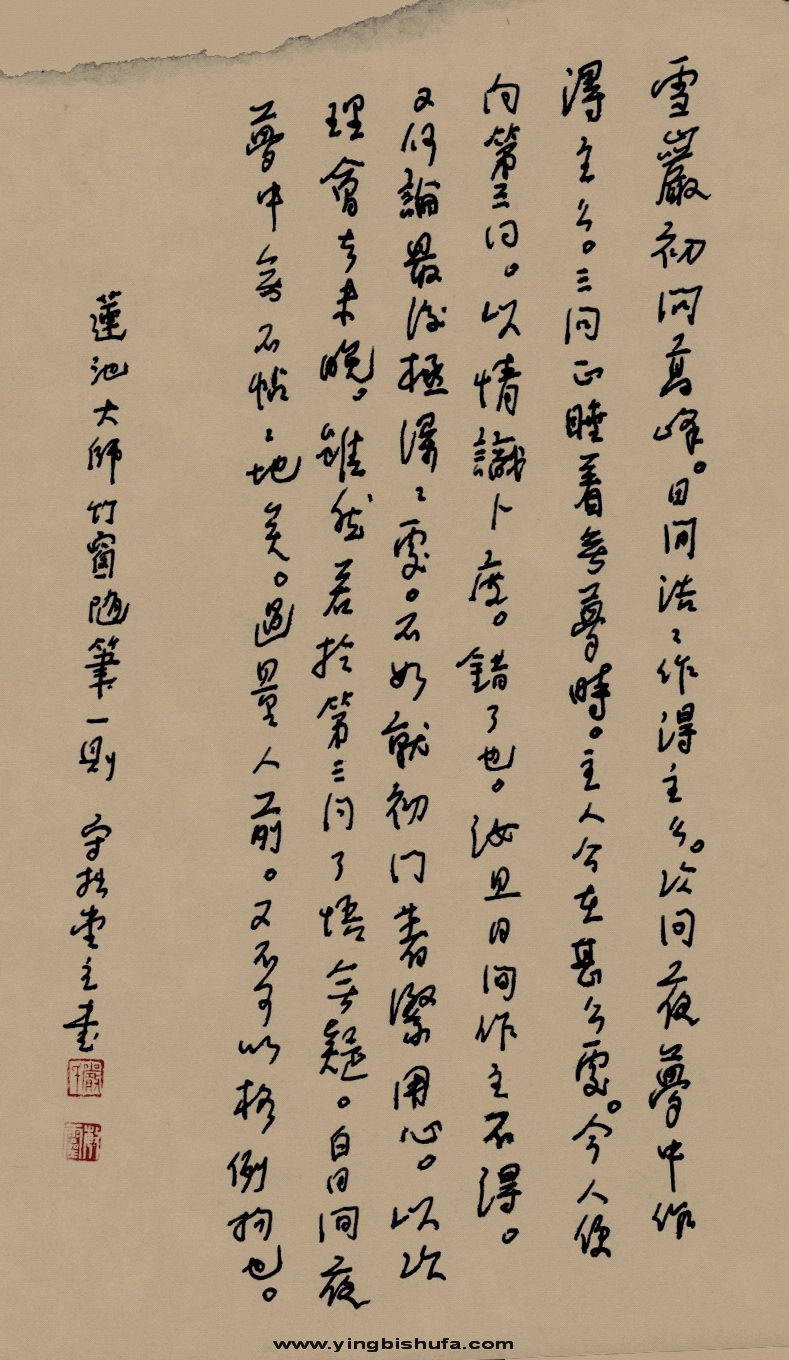 雪巖初問高峰。日间浩〻作得主么。次问夜夢中作
得主么。三问正睡着無夢時。主人公在甚么處。今人便
向第三问。以情識卜度。錯了也。汝且日间作主不得。
又何論最後極深〻處。不如就初门着緊用心。以次
理會去未晚。雖然若於第三问了悟無疑。白日间夜
夢中無不帖〻地矣。過量人前。又不可以格例拘也。
蓮池大師竹窗随筆一则 守拙堂主書
www.yingbishufa.com